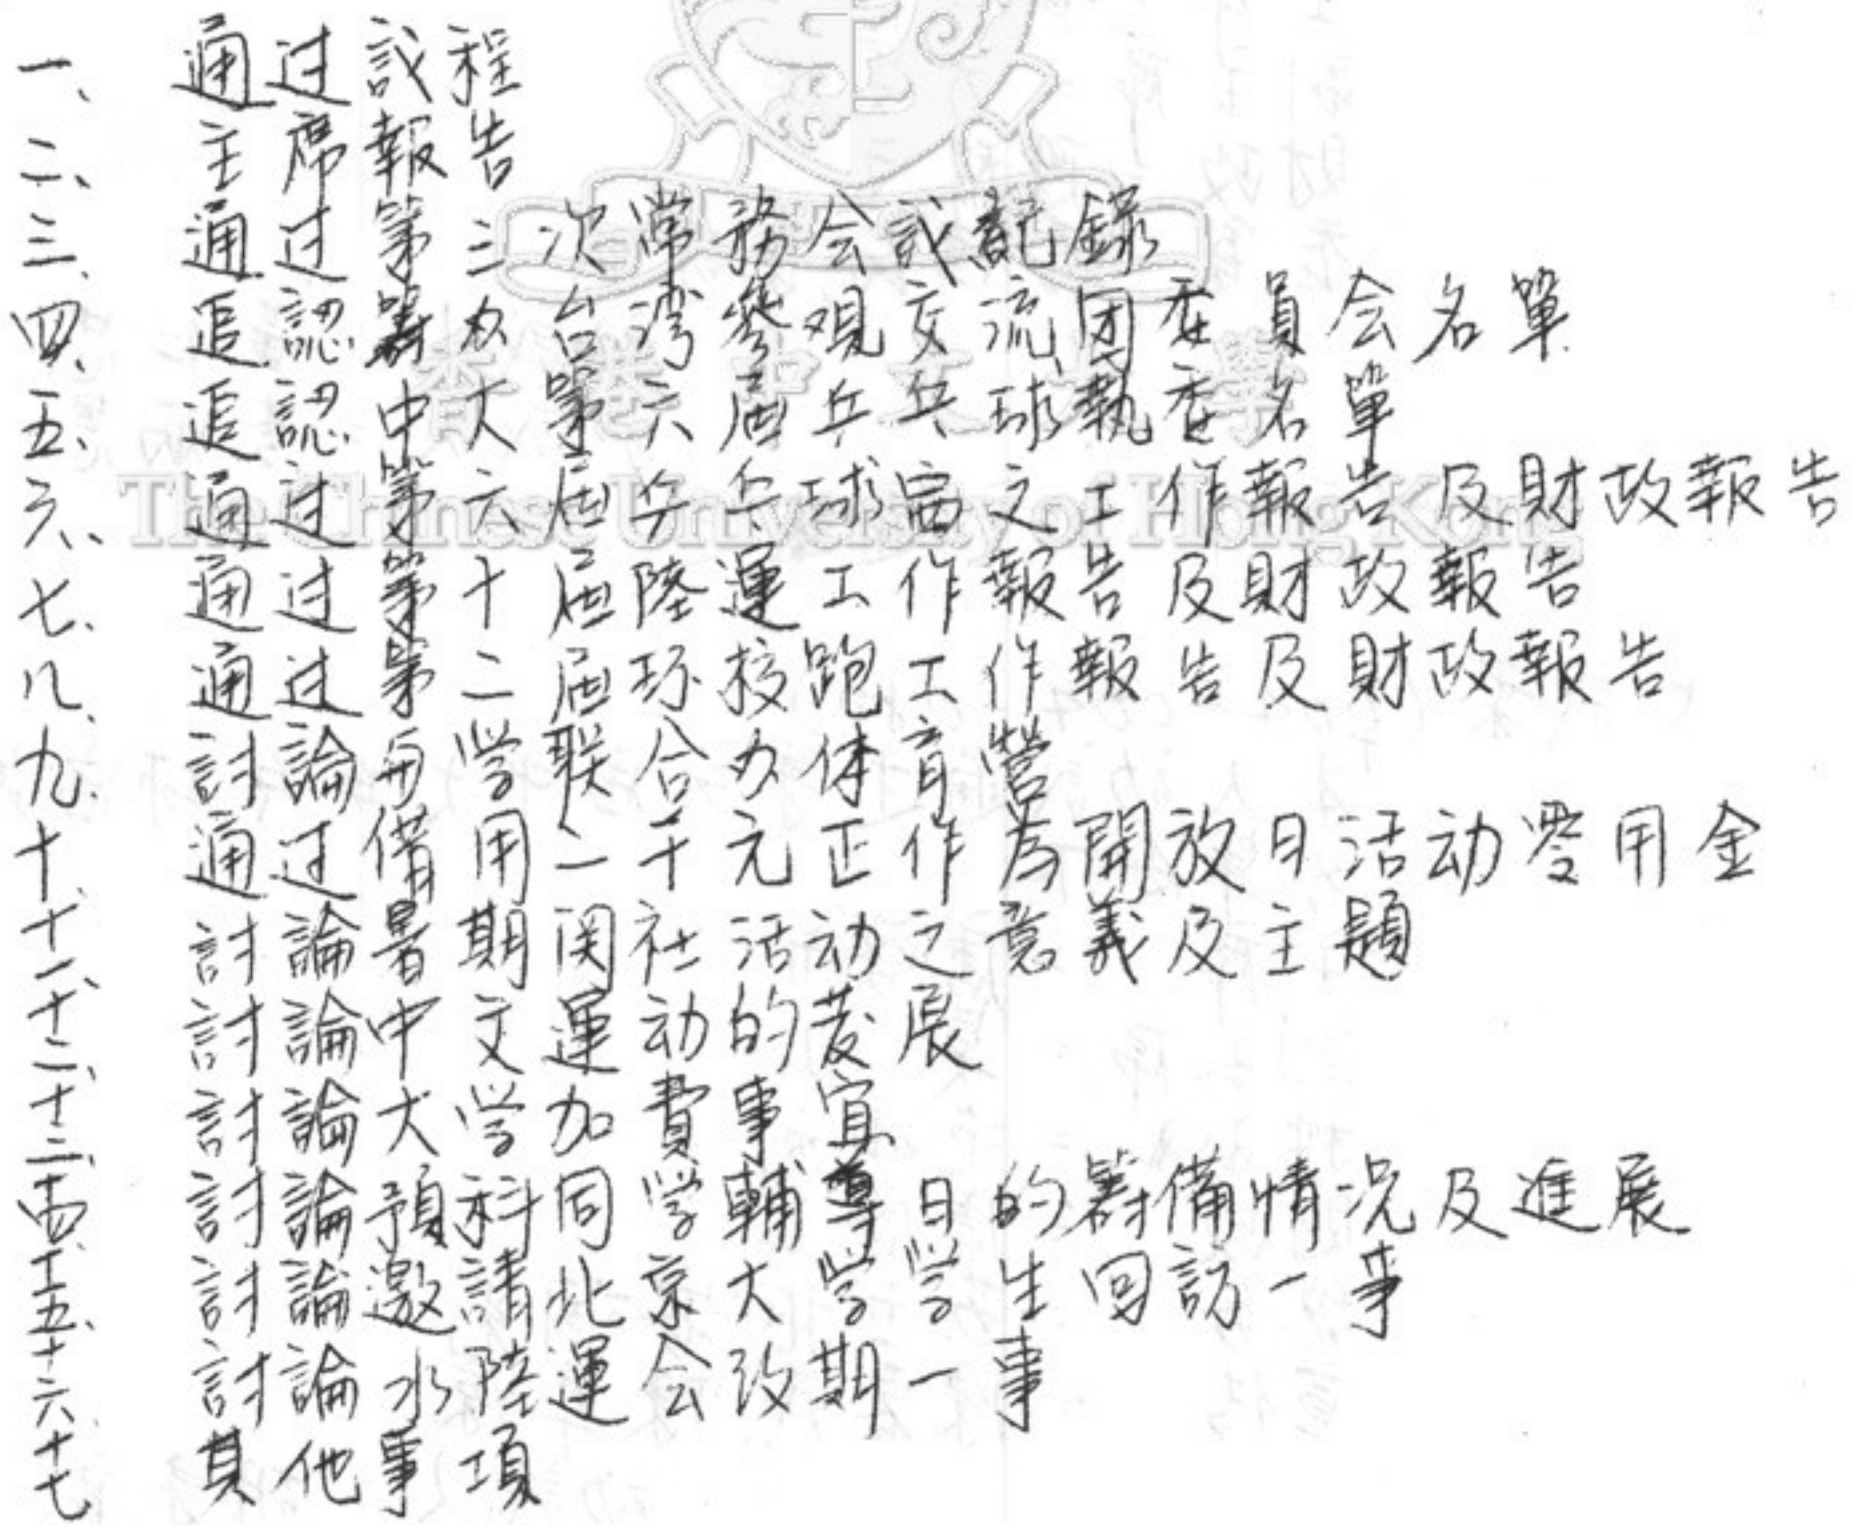 一、通过議程
二、主席報告
三、通过第三次常務会議記錄
四、追認籌办台湾參观交流团委員会名單
五、追認中大第六届乒乓球執委名單
六、通过第六届乒乓球富之工作報告及財政報告
七、通过第十届陸運工作報告及財政報告
八、通过第二届环校跑工作報告及財政報告
九、討論与学联合办体育營
十、通过備用二千元正作为開放日活动零用金
十一、討論暑期関社活动之意義及主題
十二、討論中文運动的发展
十三、討論大学加費事宜
十四、討論預科同学輔導日的籌備情况及進展
十五、討論邀請北京大学学生回訪一事
十六、討論水陸運会改期一事
十七 其他事項
香港中文大學
The Chinese University of Hong Kong